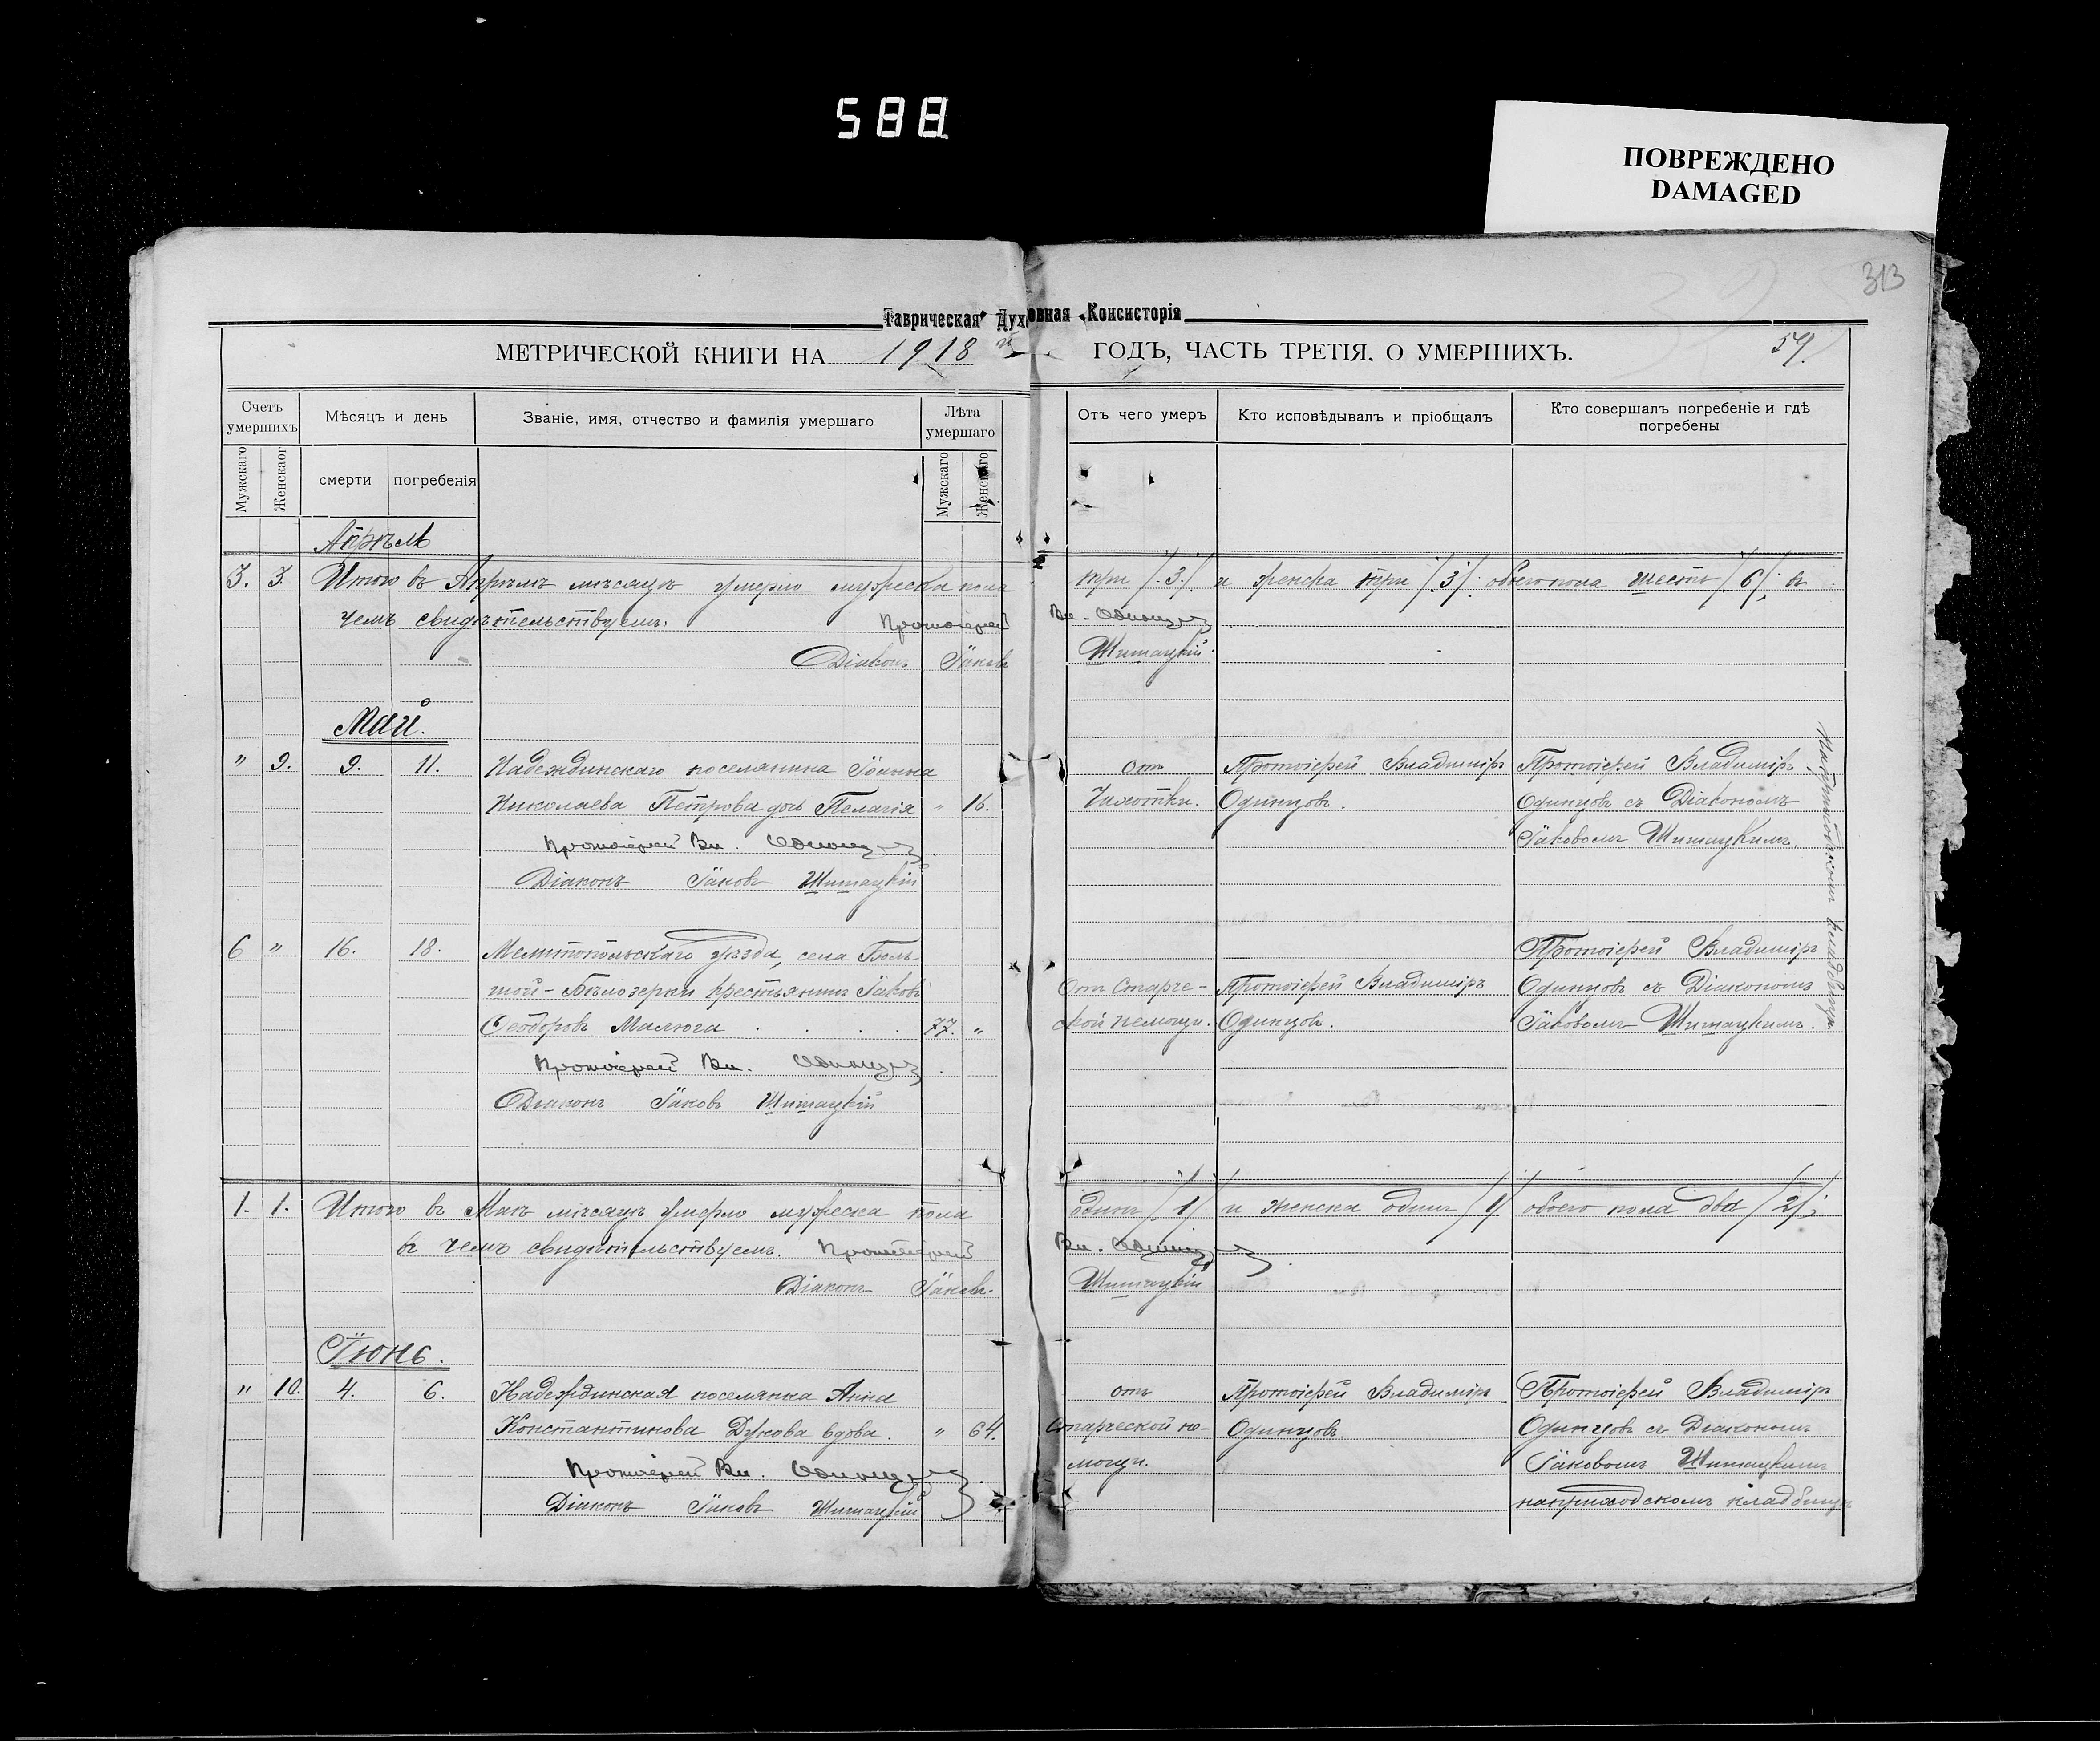 588
ПОВРЕЖДЕНО
DAMAGED
313
Таврическая Духовная Консисторія
МЕТРИЧЕСКОЙ КНИГИ НА 1918 ГОДЪ, ЧАСТЬ ТРЕТІЯ. О УМЕРШИХЪ. 59.
Счетъ умершихъ
Мѣсяцъ и день
Званіе, имя, отчество и фамилія умершаго
Лѣта умершаго
Отъ чего умеръ
Кто исповѣдывалъ и пріобщалъ
Кто совершалъ погребеніе и гдѣ погребены
Мужскаго
Женскаог
смерти
погребенія
Мужскаго
Женскаго
Апрѣль
3. 3. Итого въ Апрѣлѣ мѣсяцѣ умерло мужеска пола три /3/ и женска три /3/ обоего пола шесть /6/ въ
чемъ свидѣтельствуемъ. Протоіерей Вл. Одинцовъ
Діаконъ Іаковъ Шитацкій
Май.
" 9. 9. 11. Надеждинскаго поселянина Іоанна
Николаева Петрова дочь Пелагія " 16.
Протоіерей Вл. Одинцовъ
Діаконъ Іаковъ Шитацкій
отъ
Чахотки.
Протоіерей Владиміръ
Одинцовъ.
Протоіерей Владиміръ
Одинцовъ съ Діакономъ
Іаковомъ Шитацкимъ.
На приходскомъ кладбищѣ
6 " 16. 18. Мелитопольскаго уѣзда, села Боль-
шой-Бѣлозерки крестьянинъ Іаковъ
Ѳеодоровъ Малюга . . . . 77. "
Протоіерей Вл. Одинцовъ
Діаконъ Іаковъ Шитацкій
От Старче-
ской немощи.
Протоіерей Владиміръ
Одинцовъ.
Протоіерей Владиміръ
Одинцовъ съ Діакономъ
Іаковомъ Шитацкимъ.
1. 1. Итого въ Маѣ мѣсяцѣ умерло мужеска пола одинъ /1/ и женска одинъ /1/ обоего пола два /2/;
въ чемъ свидѣтельствуемъ. Протоіерей Вл. Одинцовъ
Діаконъ Іаковъ Шитацкій
Іюнь.
" 10. 4. 6. Надеждинская поселянка Анна
Константинова Дукова вдова. " 64.
Протоіерей Вл. Одинцовъ
Діаконъ Іаковъ Шитацкій
отъ
Старческой не-
мощи.
Протоіерей Владиміръ
Одинцовъ
Протоіерей Владиміръ
Одинцовъ съ Діакономъ
Іаковомъ Шитацкимъ
на приходскомъ кладбищѣ